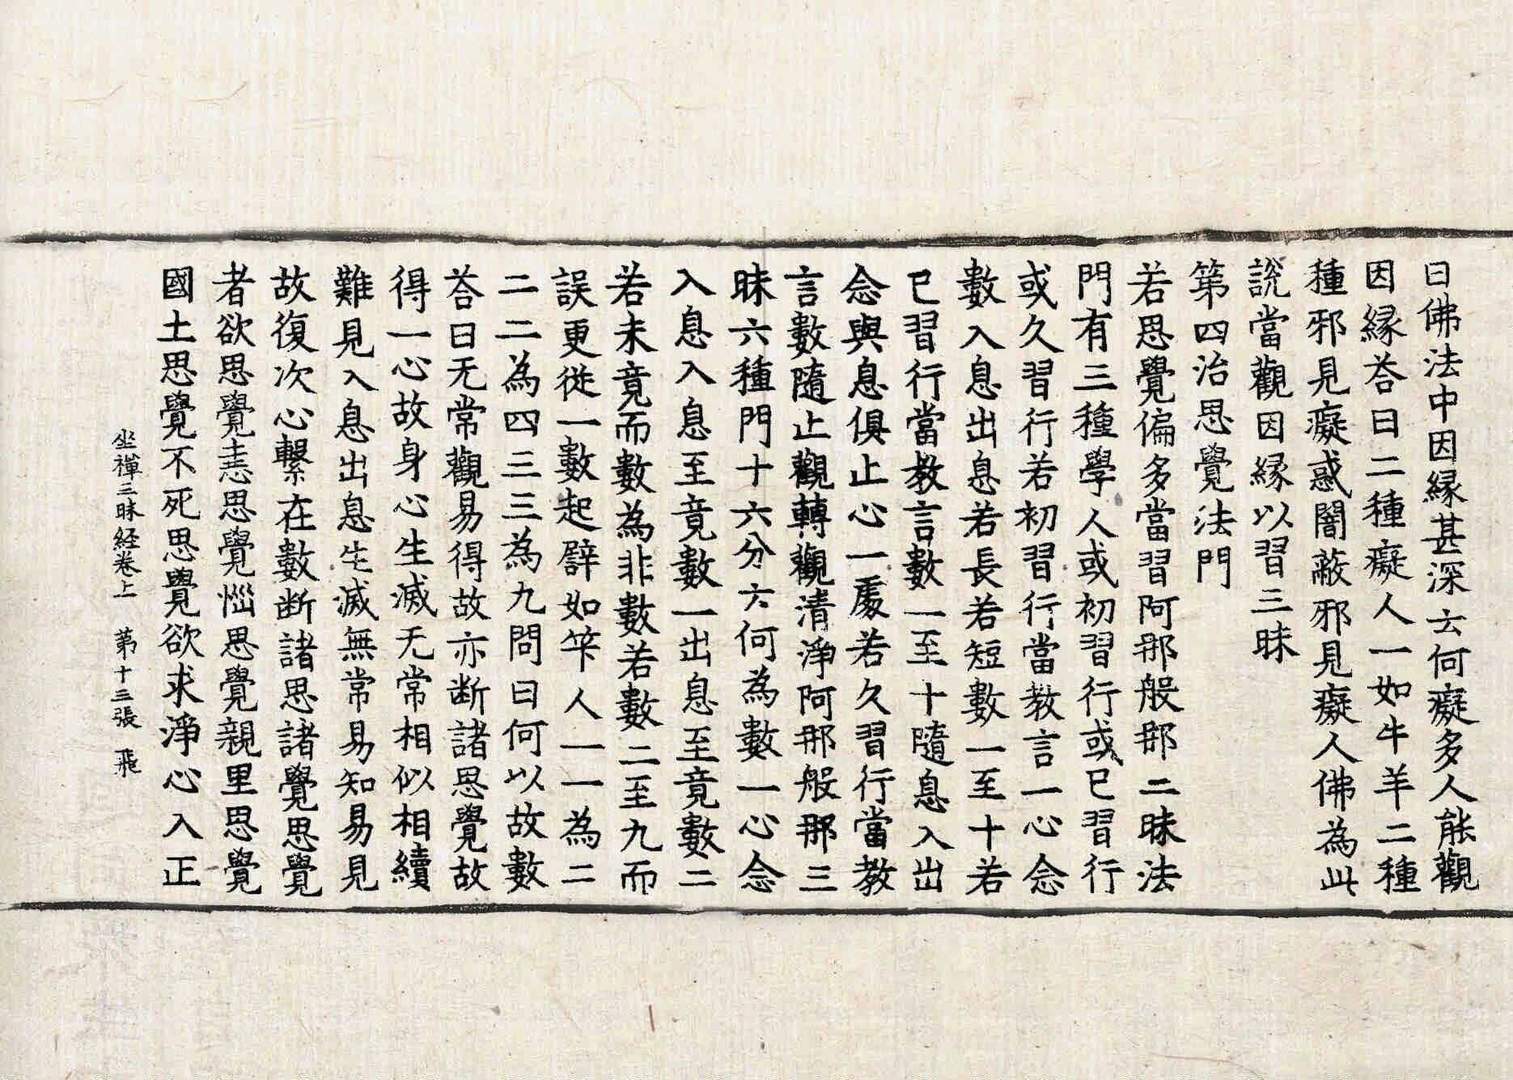 曰佛法中因縁甚深云何癡多人能觀
因縁荅曰二種癡人一如牛羊二種
種邪見癡惑闇蔽邪見癡人佛為此
說當觀因縁以習三昧
第四治思覺法門
若思覺偏多當習阿那般那三昧法
門有三種學人或初習行或已習行
或久習行若初習行當教言一心念
數入息出息若長若短數一至十若
已習行當教言數一至十隨息入出
念與息俱止心一處若久習行當教
言數隨止觀轉觀清淨阿那般那三
昧六種門十六分云何為數一心念
入息入息至竟數一出息至竟數二
若未竟而數為非數若數二至九而
誤更從一數起譬如筭人一一為二
二二為四三三為九問曰何以故數
荅曰无常觀易得故亦断諸思覺故
得一心故身心生滅无常相似相續
難見入息出息生滅無常易知易見
故復次心繫在數断諸思諸覺思覺
者欲思覺恚思覺惱思覺親里思覺
國土思覺不死思覺欲求淨心入正
坐禪三昧経卷上 第十三張 飛